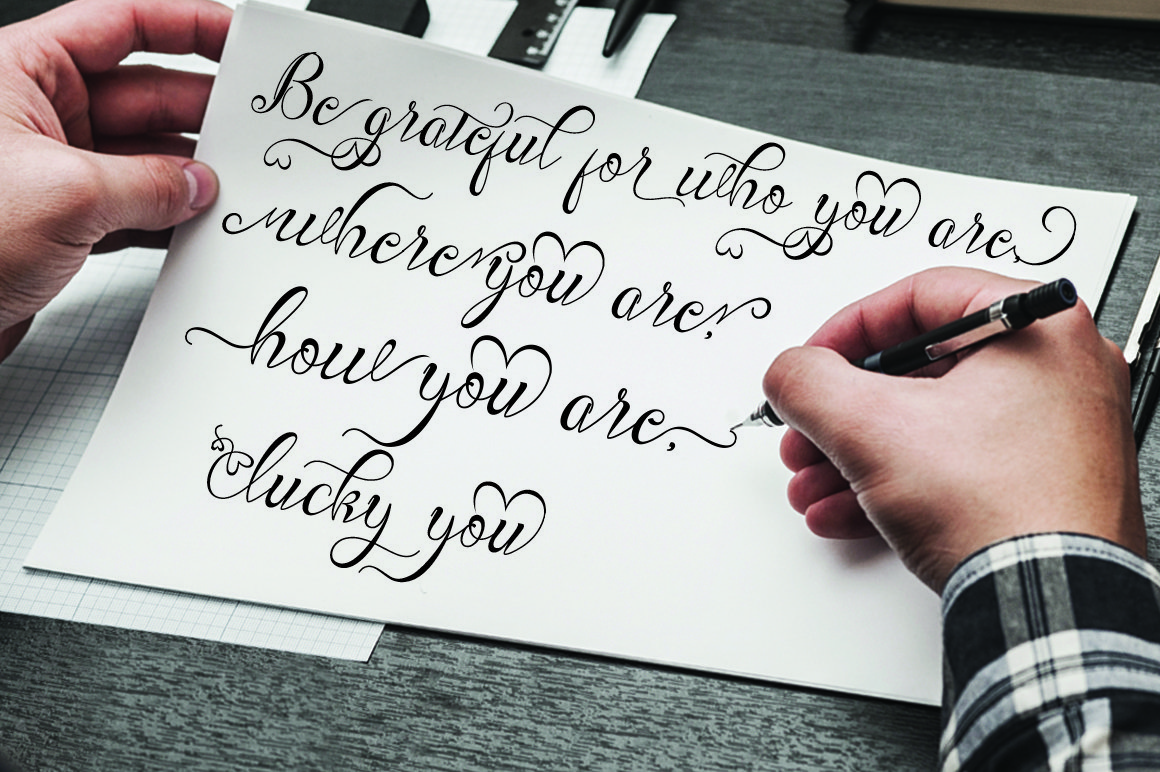 Be grateful for who you are,
where you are,
how you are,
lucky you